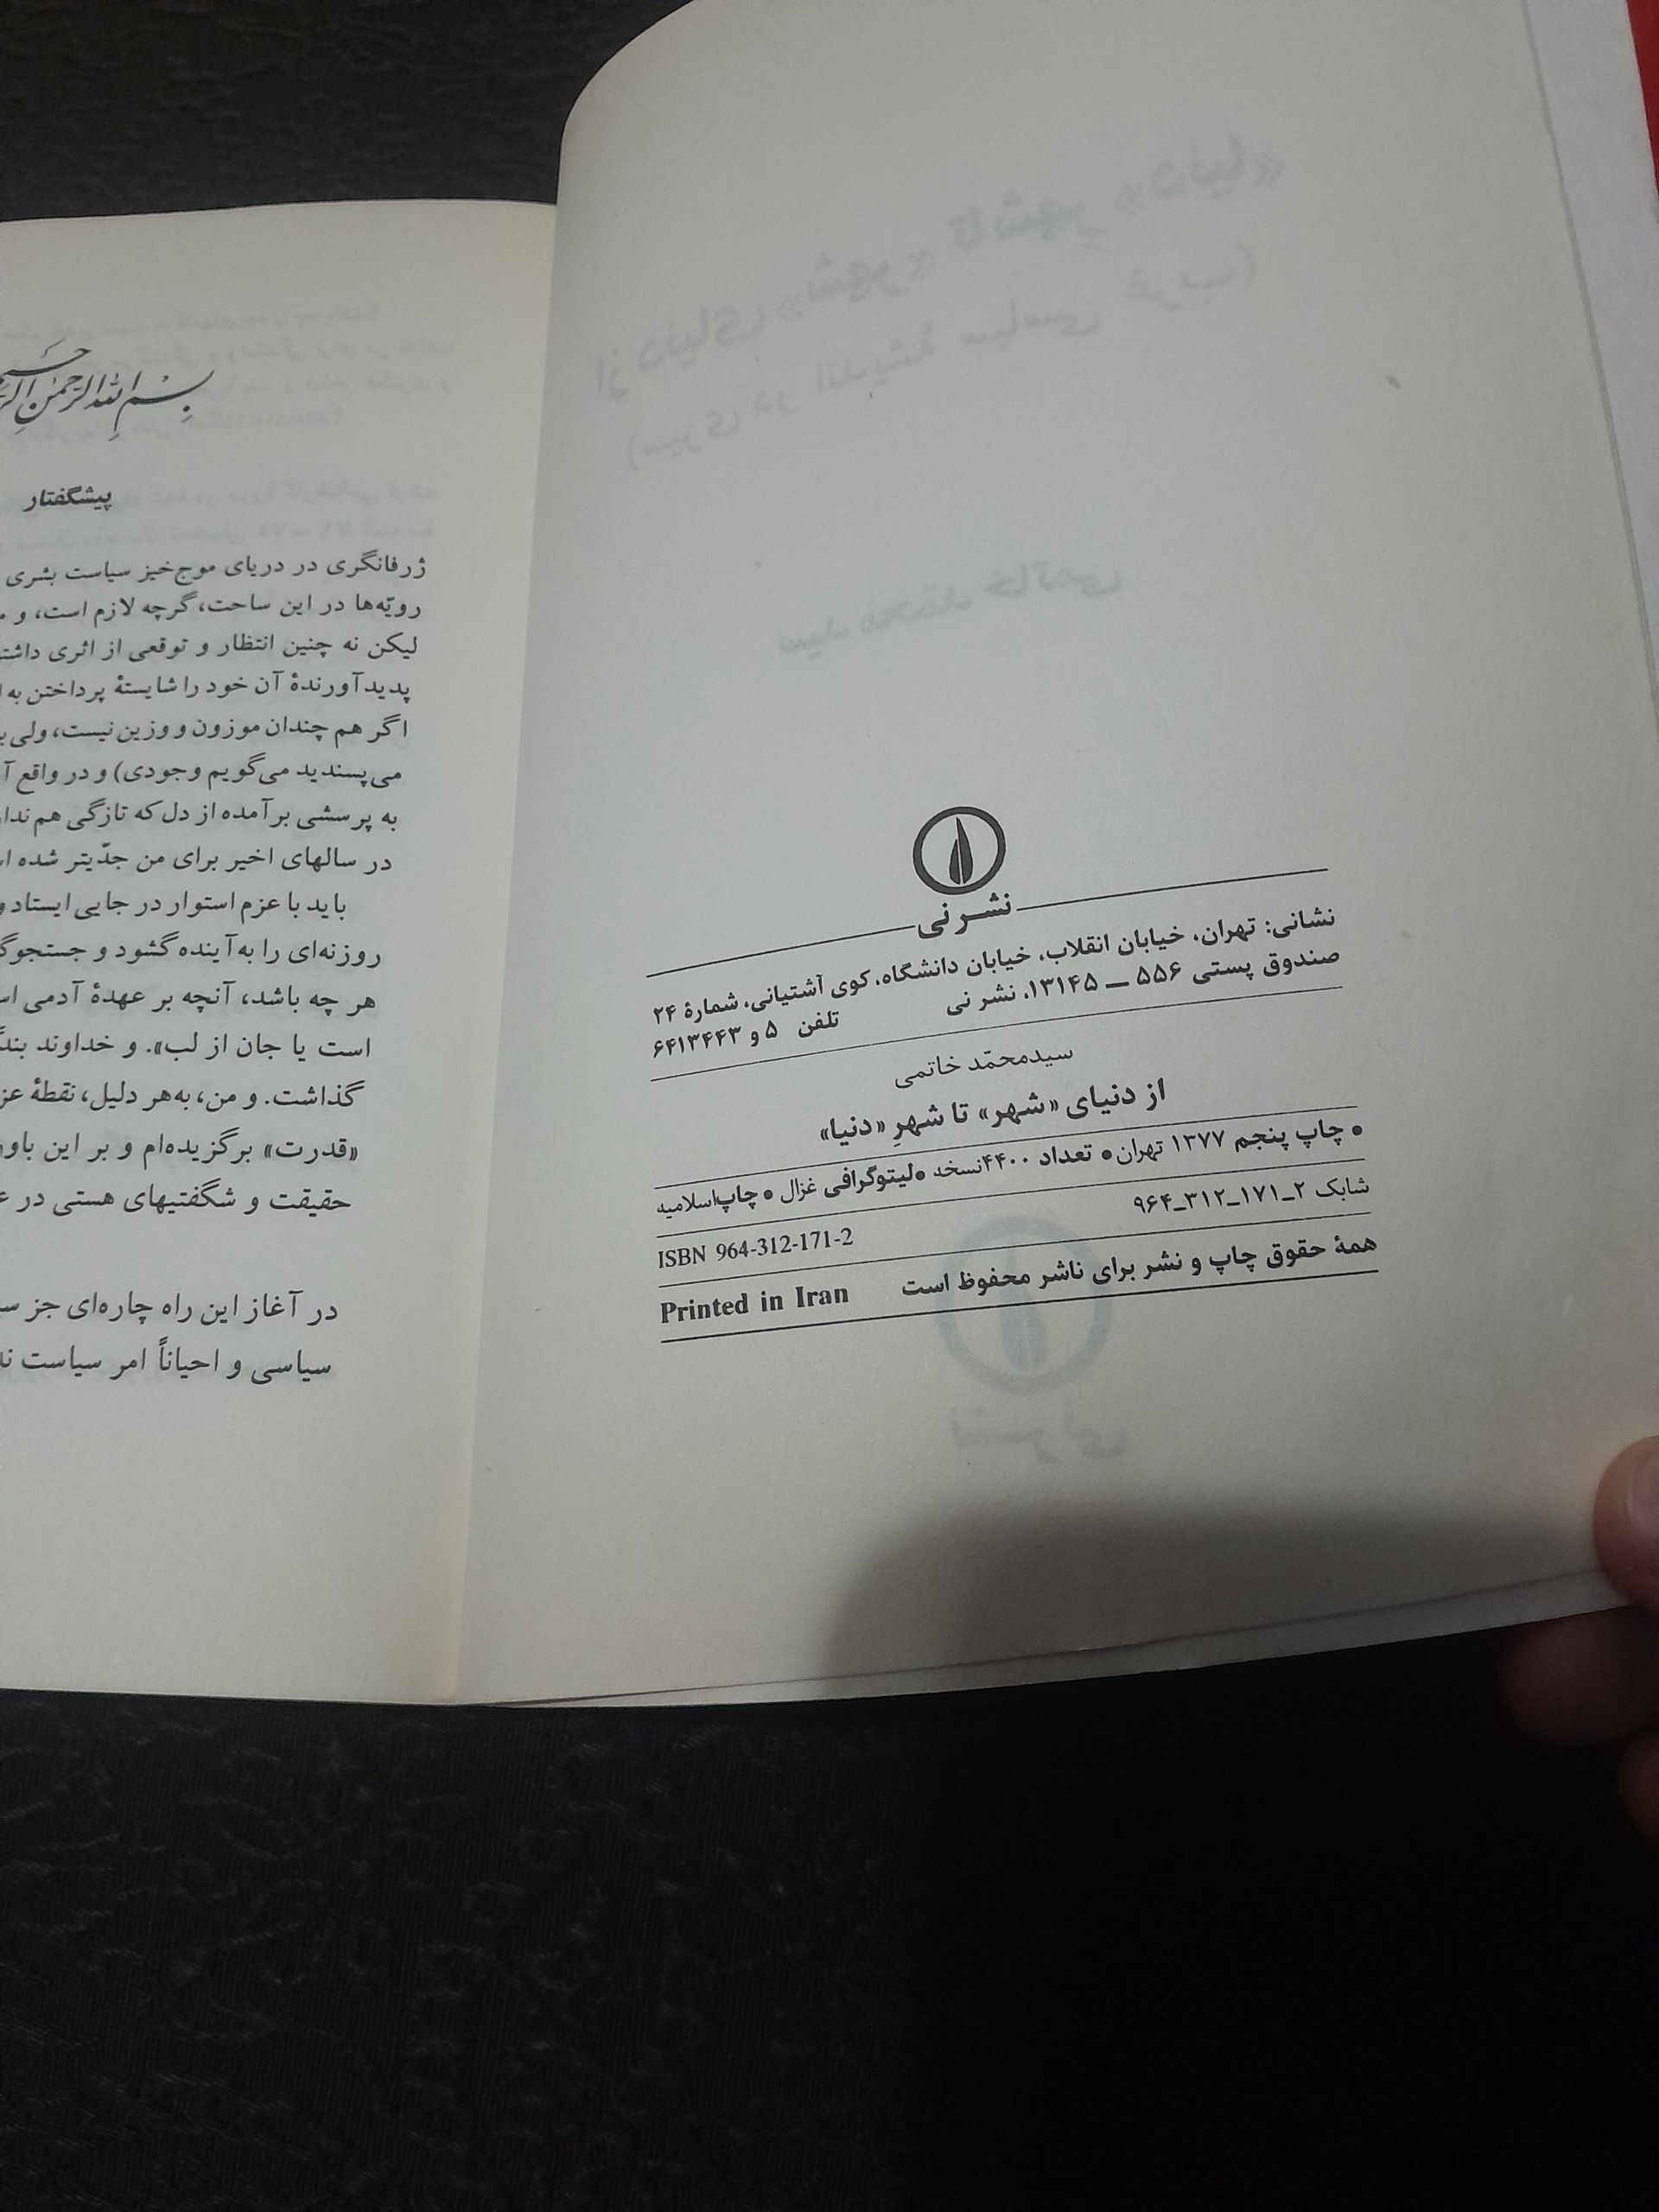 نشر نی
نشانی: تهران، خیابان انقلاب، خیابان دانشگاه، کوی آشتیانی، شمارهٔ ۲۴
صندوق پستی ۵۵۶ — ۱۳۱۴۵، نشر نی تلفن ۵ و ۶۴۱۳۴۴۳
سیدمحمّد خاتمی
از دنیای «شهر» تا شهرِ «دنیا»
• چاپ پنجم ۱۳۷۷ تهران • تعداد ۴۴۰۰ نسخه • لیتوگرافی غزال • چاپ اسلامیه
شابک ۲_۱۷۱_۳۱۲_۹۶۴
ISBN 964-312-171-2
همهٔ حقوق چاپ و نشر برای ناشر محفوظ است
Printed in Iran
بسم الله الرحمن
پیشگفتار
ژرفانگری در دریای موج‌خیز سیاست بشری
رویّه‌ها در این ساحت، گرچه لازم است، و
لیکن نه چنین انتظار و توقعی از اثری
پدیدآورندهٔ آن خود را شایستهٔ پرداختن به
اگر هم چندان موزون و وزین نیست، ولی
می‌پسندید می‌گویم وجودی) و در واقع
به پرسشی برآمده از دل که تازگی هم
در سالهای اخیر برای من جدّیتر شده
باید با عزم استوار در جایی ایستاد
روزنه‌ای را به آینده گشود و
هر چه باشد، آنچه بر عهدهٔ آدمی
است یا جان از لب». و خداوند
گذاشت. و من، به‌هر دلیل، نقطهٔ
«قدرت» برگزیده‌ام و بر این
حقیقت و شگفتیهای هستی در
در آغاز این راه چاره‌ای جز
سیاسی و احیاناً امر سیاست